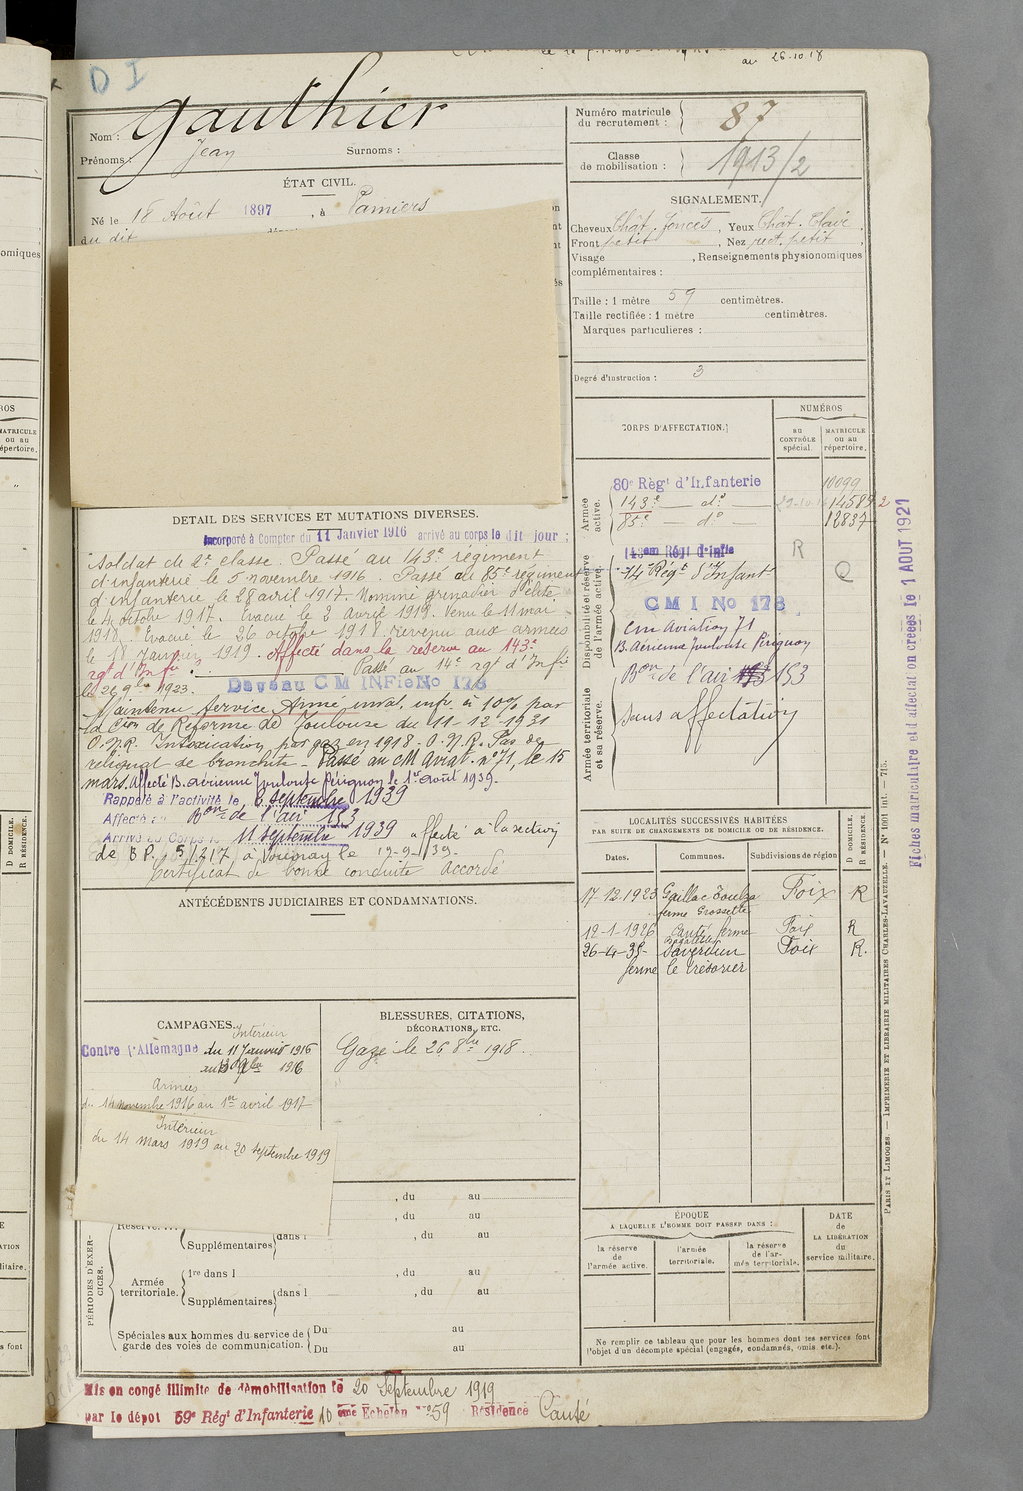 au 26-10-18
D I
Nom : Gauthier
Prénoms : Jean Surnoms :
ÉTAT CIVIL.
Né le 18 Août 1897, à Pamiers
du dit
Numéro matricule du recrutement : 87
Classe de mobilisation : 1913/2
SIGNALEMENT.
Cheveux Chât. foncés, Yeux Chât. Clair,
Front petit, Nez rect. petit,
Visage , Renseignements physionomiques
complémentaires :
Taille : 1 mètre 59 centimètres.
Taille rectifiée : 1 mètre centimètres.
Marques particulières :
Degré d'instruction : 3
CORPS D'AFFECTATION.
NUMÉROS
au CONTRÔLE spécial.
MATRICULE ou au répertoire.
Armée active.
80e Régt d'Infanterie 10099
143e — do — 14589
85e — do — 12837
Disponibilité et réserve de l'armée active.
143em Régt d'Infie R
14e Régt d'Infant.
CMI No 178
Cm Aviation 71
B. Aérienne Toulouse Pérignon
Armée territoriale et sa réserve.
Bon de l'air 153
Sans affectation
DÉTAIL DES SERVICES ET MUTATIONS DIVERSES.
Incorporé à Compter du 11 Janvier 1916 arrivé au corps le dit jour ;
Soldat de 2e classe. Passé au 143e régiment
d'infanterie le 5 novembre 1916. Passé au 85e régiment
d'infanterie le 28 avril 1917. Nommé grenadier d'élite
le 4 octobre 1917. Évacué le 2 avril 1918. Venu le 11 mai
1918. Évacué le 26 octobre 1918. revenu aux armées
le 18 Janvier 1919. Affecté dans la réserve au 143e
rgt d'Infie. Passé au 14e rgt d'Infie
le 26 9bre 1923. Devenu CM INFie No 178
Maintenu Service Armé inval. inf. à 10% par
la Cion de Réforme de Toulouse du 11-12-1931
O.N.R. Intoxication par gaz en 1918. O.N.R. Pas de
reliquat de bronchite - Passé au CM Aviat. no 71, le 15
mars. Affecté B. Aérienne Toulouse Pérignon le 1er Août 1939.
Rappelé à l'activité le 8 septembre 1939
Affecté au Bon de l'air 153
Arrivé au Corps le 11 septembre 1939 affecté à la section
de B P. 5/217 à
Certificat de bonne conduite accordé
ANTÉCÉDENTS JUDICIAIRES ET CONDAMNATIONS.
LOCALITÉS SUCCESSIVES HABITÉES
PAR SUITE DE CHANGEMENTS DE DOMICILE OU DE RÉSIDENCE.
Dates. Communes. Subdivisions de région D DOMICILE. R RÉSIDENCE.
17-12-1923 Gaillac Toulza Foix R
ferme Grossette
12-1-1926 Canté ferme Foix R
26-4-35- Saverdun Foix R.
ferme le trésorier
CAMPAGNES.
Intérieur
Contre l'Allemagne du 11 Janvier 1916
au 13 9bre 1916
Armées
du 14 novembre 1916 au 1er avril 1917
Intérieur
du 14 mars 1919 au 20 Septembre 1919
BLESSURES, CITATIONS,
DÉCORATIONS, ETC.
Gazé le 26 8bre 1918.
PÉRIODES D'EXERCICES.
, du au
Réserve. , du au
Supplémentaires dans l , du au
Armée territoriale. 1re dans l , du au
Supplémentaires dans l , du au
Spéciales aux hommes du service de garde des voies de communication. Du au
Du au
ÉPOQUE
A LAQUELLE L'HOMME DOIT PASSER DANS :
la réserve de l'armée active. l'armée territoriale. la réserve de l'armée territoriale.
DATE de LA LIBÉRATION du service militaire.
Ne remplir ce tableau que pour les hommes dont les services font
l'objet d'un décompte spécial (engagés, condamnés, omis etc.).
Mis en congé illimité de démobilisation le 20 Septembre 1919
par le dépôt 59e Régt d'Infanterie 10 ème Échelon no 59 Résidence Canté
Fiches matriculaire et d'affectation créées le 1 AOUT 1921
PARIS ET LIMOGES. — IMPRIMERIE ET LIBRAIRIE MILITAIRES CHARLES-LAVAUZELLE. — No 1001 int. — 715.